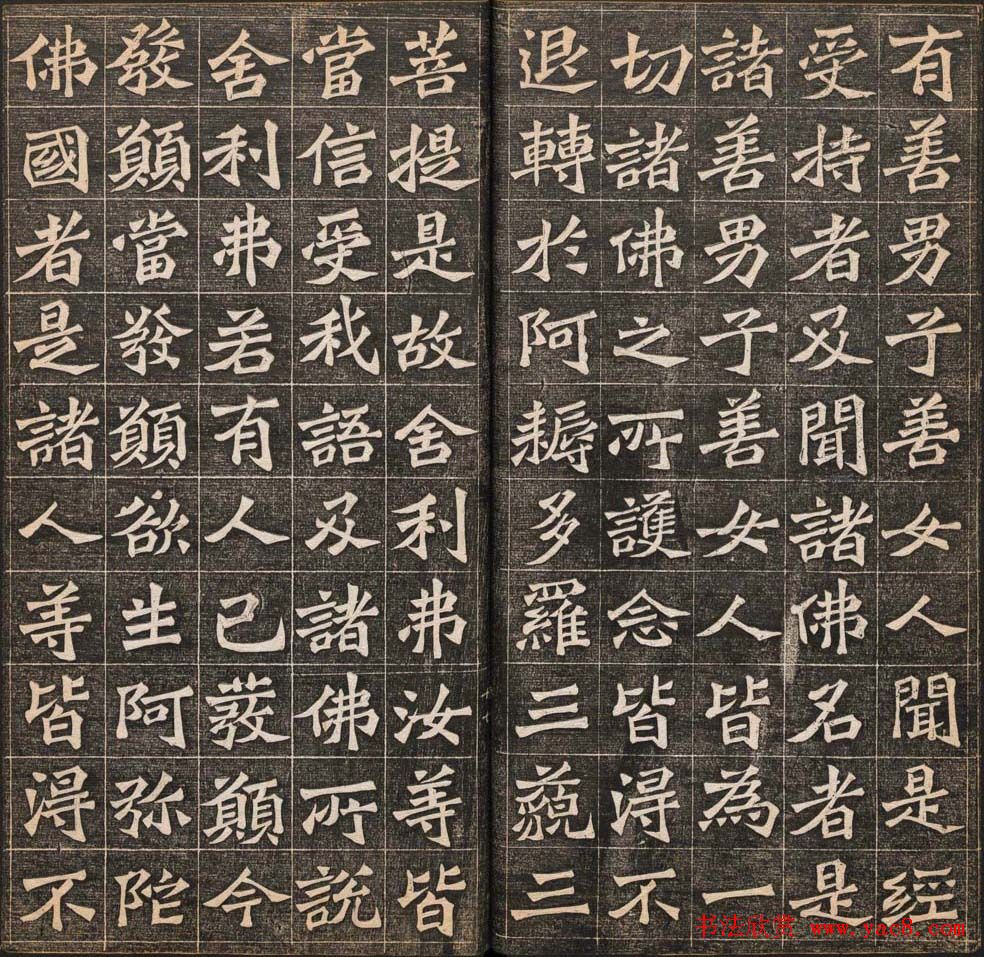 有善男子善女人聞是經
受持者及聞諸佛名者是
諸善男子善女人皆為一
切諸佛之所護念皆得不
退轉於阿耨多羅三藐三
菩提是故舍利弗汝等皆
當信受我語及諸佛所說
舍利弗若有人已發願今
發願當發願欲生阿弥陀
佛國者是諸人等皆得不
书法欣赏 www.yac8.com